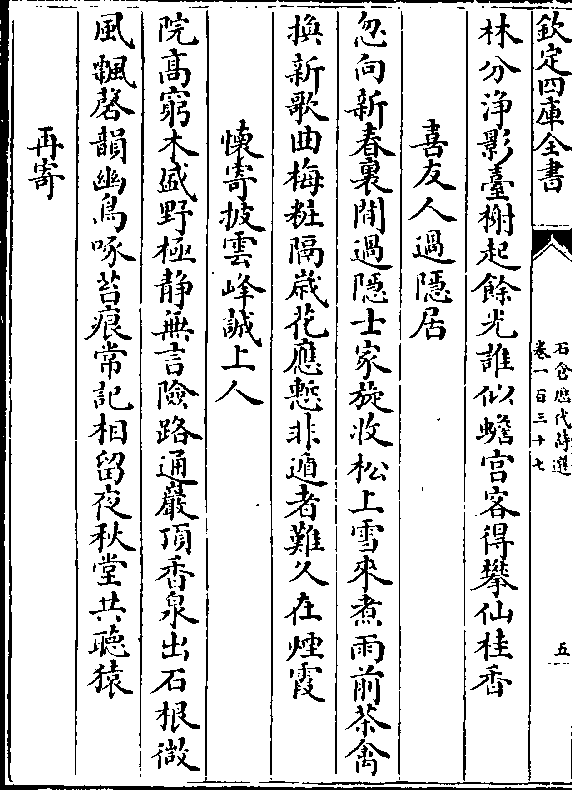 欽定四庫全書
石倉歷代詩選
卷一百三十七
五
林分浄影臺榭起餘光誰似蟾宫客得攀仙桂香
喜友人過隱居
忽向新春裏閒過隱士家旋收松上雪來煮雨前茶禽
換新歌曲梅粧隔嵗花應慙非遁者難久在煙霞
懐寄披雲峰誠上人
院髙窮木盛野極静無言險路通巖頂香泉出石根微
風飄磬韻幽鳥啄苔痕常記相留夜秋堂共聴猿
再寄